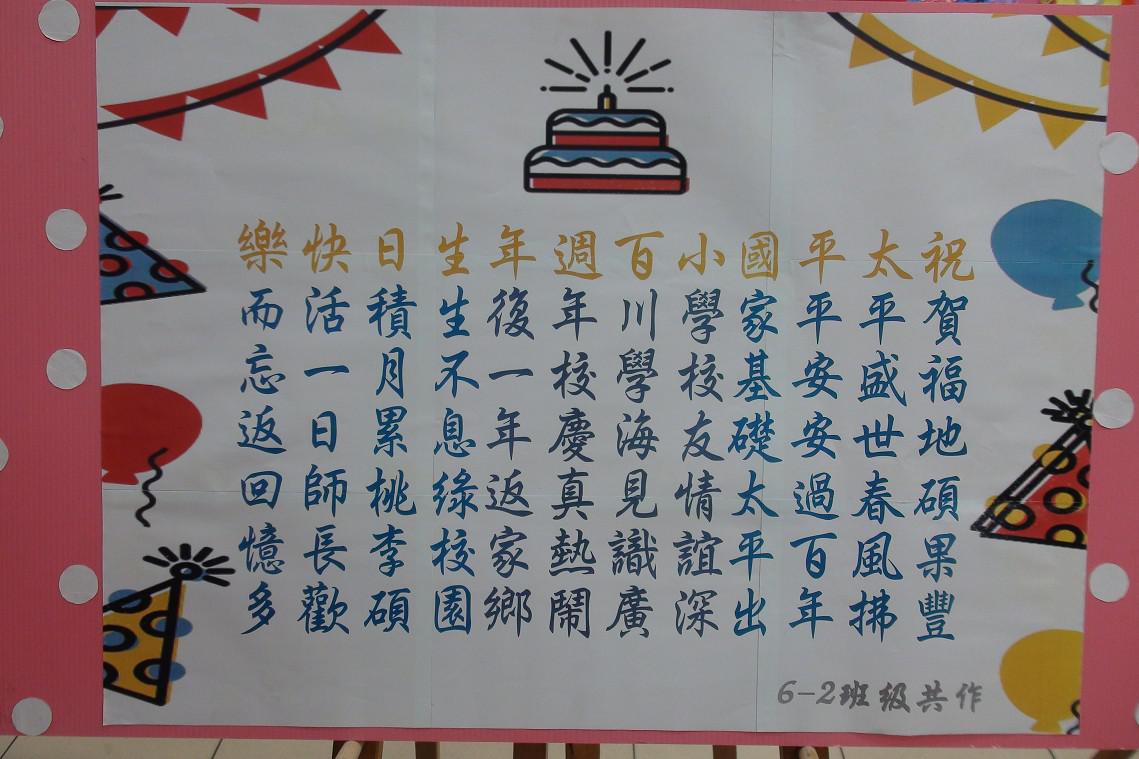 祝賀福地碩果豐
太平盛世春風拂
平平安安過百年
國家基礎太平出
小學校友情誼深
百川學海見識廣
週年校慶真熱鬧
年後一年返家鄉
生生不息綠校園
日積月累桃李碩
快活一日師長歡
樂而忘返回憶多
6-2班級共作